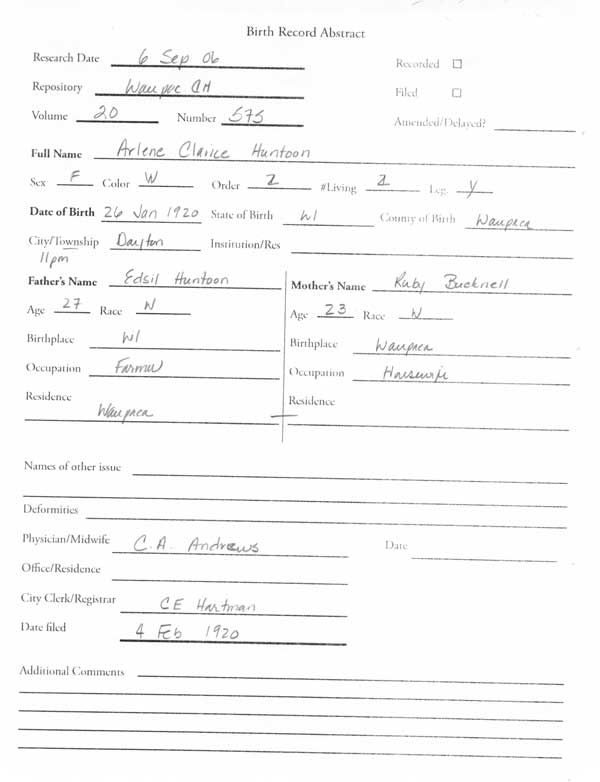 Birth Record Abstract
Research Date 6 Sep 06 Recorded ☐
Repository Waupac CH Filed ☐
Volume 20 Number 575 Amended/Delayed?
Full Name Arlene Clarice Huntoon
Sex F Color W Order 2 #Living 2 Leg. y
Date of Birth 26 Jan 1920 State of Birth WI County of Birth Waupaca
City/Township Dayton Institution/Res
11pm
Father's Name Edsil Huntoon Mother's Name Ruby Bucknell
Age 27 Race W Age 23 Race W
Birthplace WI Birthplace Waupaca
Occupation Farmer Occupation Housewife
Residence Waupaca Residence
Names of other issue
Deformities
Physician/Midwife C.A. Andrews Date
Office/Residence
City Clerk/Registrar CE Hartman
Date filed 4 Feb 1920
Additional Comments